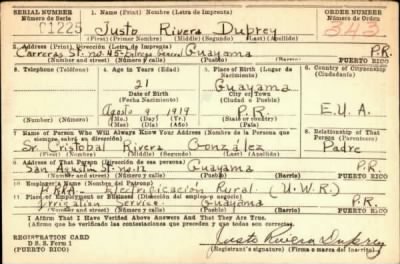 SERIAL NUMBER 1. Name (Print) Nombre (Letra de Imprenta) ORDER NUMBER
Número de Serie Número de Orden
C1225 Justo Rivera Dubrey 343
(First) (Primer Nombre) (Middle) (Segundo) (Last) (Apellido)
2. Address (Print) Dirección (Letra de Imprenta)
Carreras St. no. 45- General Guayama P.R.
(Number and street) (Número y calle) (Town) (Pueblo) PUERTO RICO
3. Telephone (Teléfono) 4. Age in Years (Edad) 5. Place of Birth (Lugar de Nacimiento) 6. Country of Citizenship (Ciudadanía)
21 Guayama
Date of Birth City or Town
(Fecha Nacimiento) (Ciudad o Pueblo)
Agosto 9 1919 P.R. E.U.A.
(Mo.) (Day) (Yr.) State or country
(Mes) (Día) (Año) (Estado o país)
7. Name of Person Who Will Always Know Your Address (Nombre de la Persona que siempre sabrá su dirección) 8. Relationship of That Person (Parentesco)
Sr. Cristobal Rivera González Padre
(First) (Primer Nombre) (Middle) (Segundo) (Last) (Apellido)
9. Address of That Person (Dirección de esa persona)
San Agustin St. no. 12 Guayama P.R.
(Number and street) (Número y calle) (Town) (Pueblo) PUERTO RICO
10. Employer's Name (Nombre del Patrono)
P.R.R.A. Electrificación Rural (U.W.R.)
11. Place of Employment or Business (Dirección del empleo o negocio)
Irrigation Service Guayama P.R.
(Number and street) (Número y calle) (Town) (Pueblo) PUERTO RICO
I Affirm That I Have Verified Above Answers And That They Are True.
Afirmo que he verificado las contestaciones que preceden y que todas son correctas.
REGISTRATION CARD
D. S. S. Form 1
(PUERTO RICO)
Justo Rivera Dubrey
(Registrant's signature) (Firma o marca del inscrito)